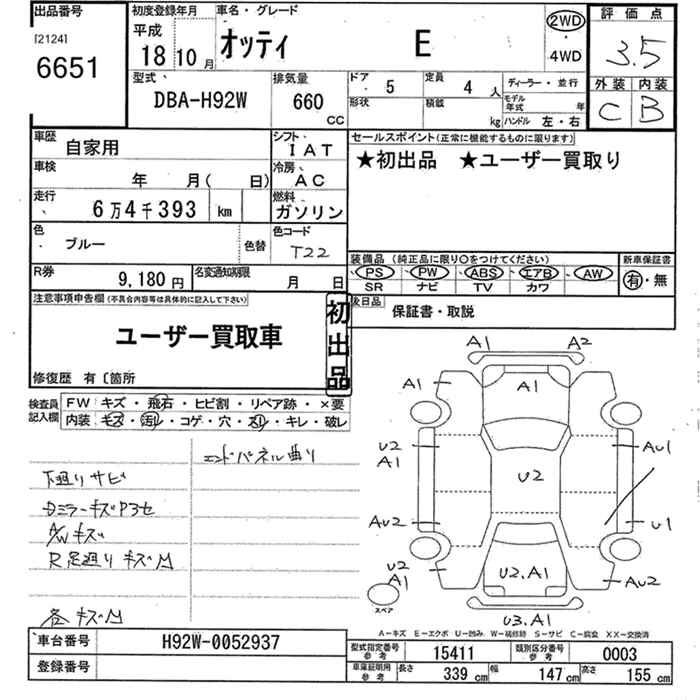 出品番号
[2124]
6651
初度登録年月
平成
18 10 月
車名・グレード
オッティ E
2WD
・
4WD
評価点
3.5
外装 内装
C B
型式
DBA-H92W
排気量
660 CC
ドア 5
定員 4 人
形状
積載 kg
ディーラー・並行
モデル年式 年
ハンドル 左・右
車歴 自家用
シフト IAT
セールスポイント(正常に機能するものに限ります)
★初出品 ★ユーザー買取り
車検 年 月( 日)
冷房 AC
走行 6万4千393 km
燃料 ガソリン
色 ブルー 色替
色コード T22
装備品 (純正品に限り○をつけてください)
PS PW ABS エアB AW
SR ナビ TV カワ
新車保証書
有・無
R券 9,180 円
名変通知期限 月 日
後日品 保証書・取説
注意事項申告欄 (不具合内容等は具体的に記入して下さい)
ユーザー買取車
初出品
修復歴 有〔箇所
検査員記入欄
FW キズ・飛石・ヒビ割・リペア跡・×要
内装 キズ・汚レ・コゲ・穴・スレ・キレ・破レ
エンドパネル曲り
下廻りサビ
キズ
R足廻りキズM
各キズM
A1 A2
A1 A1
U2 A1
AU1
U2
AU2
U1
U2 A1
U2.A1
AU2
スペア
U3.A1
A-キズ E-エクボ U-凹み W-補修跡 S-サビ C-腐食 XX-交換済
車台番号 H92W-0052937
登録番号
型式指定番号 参考 15411
類別区分番号 参考 0003
車庫証明用 参考
長さ 339 cm
幅 147 cm
高さ 155 cm